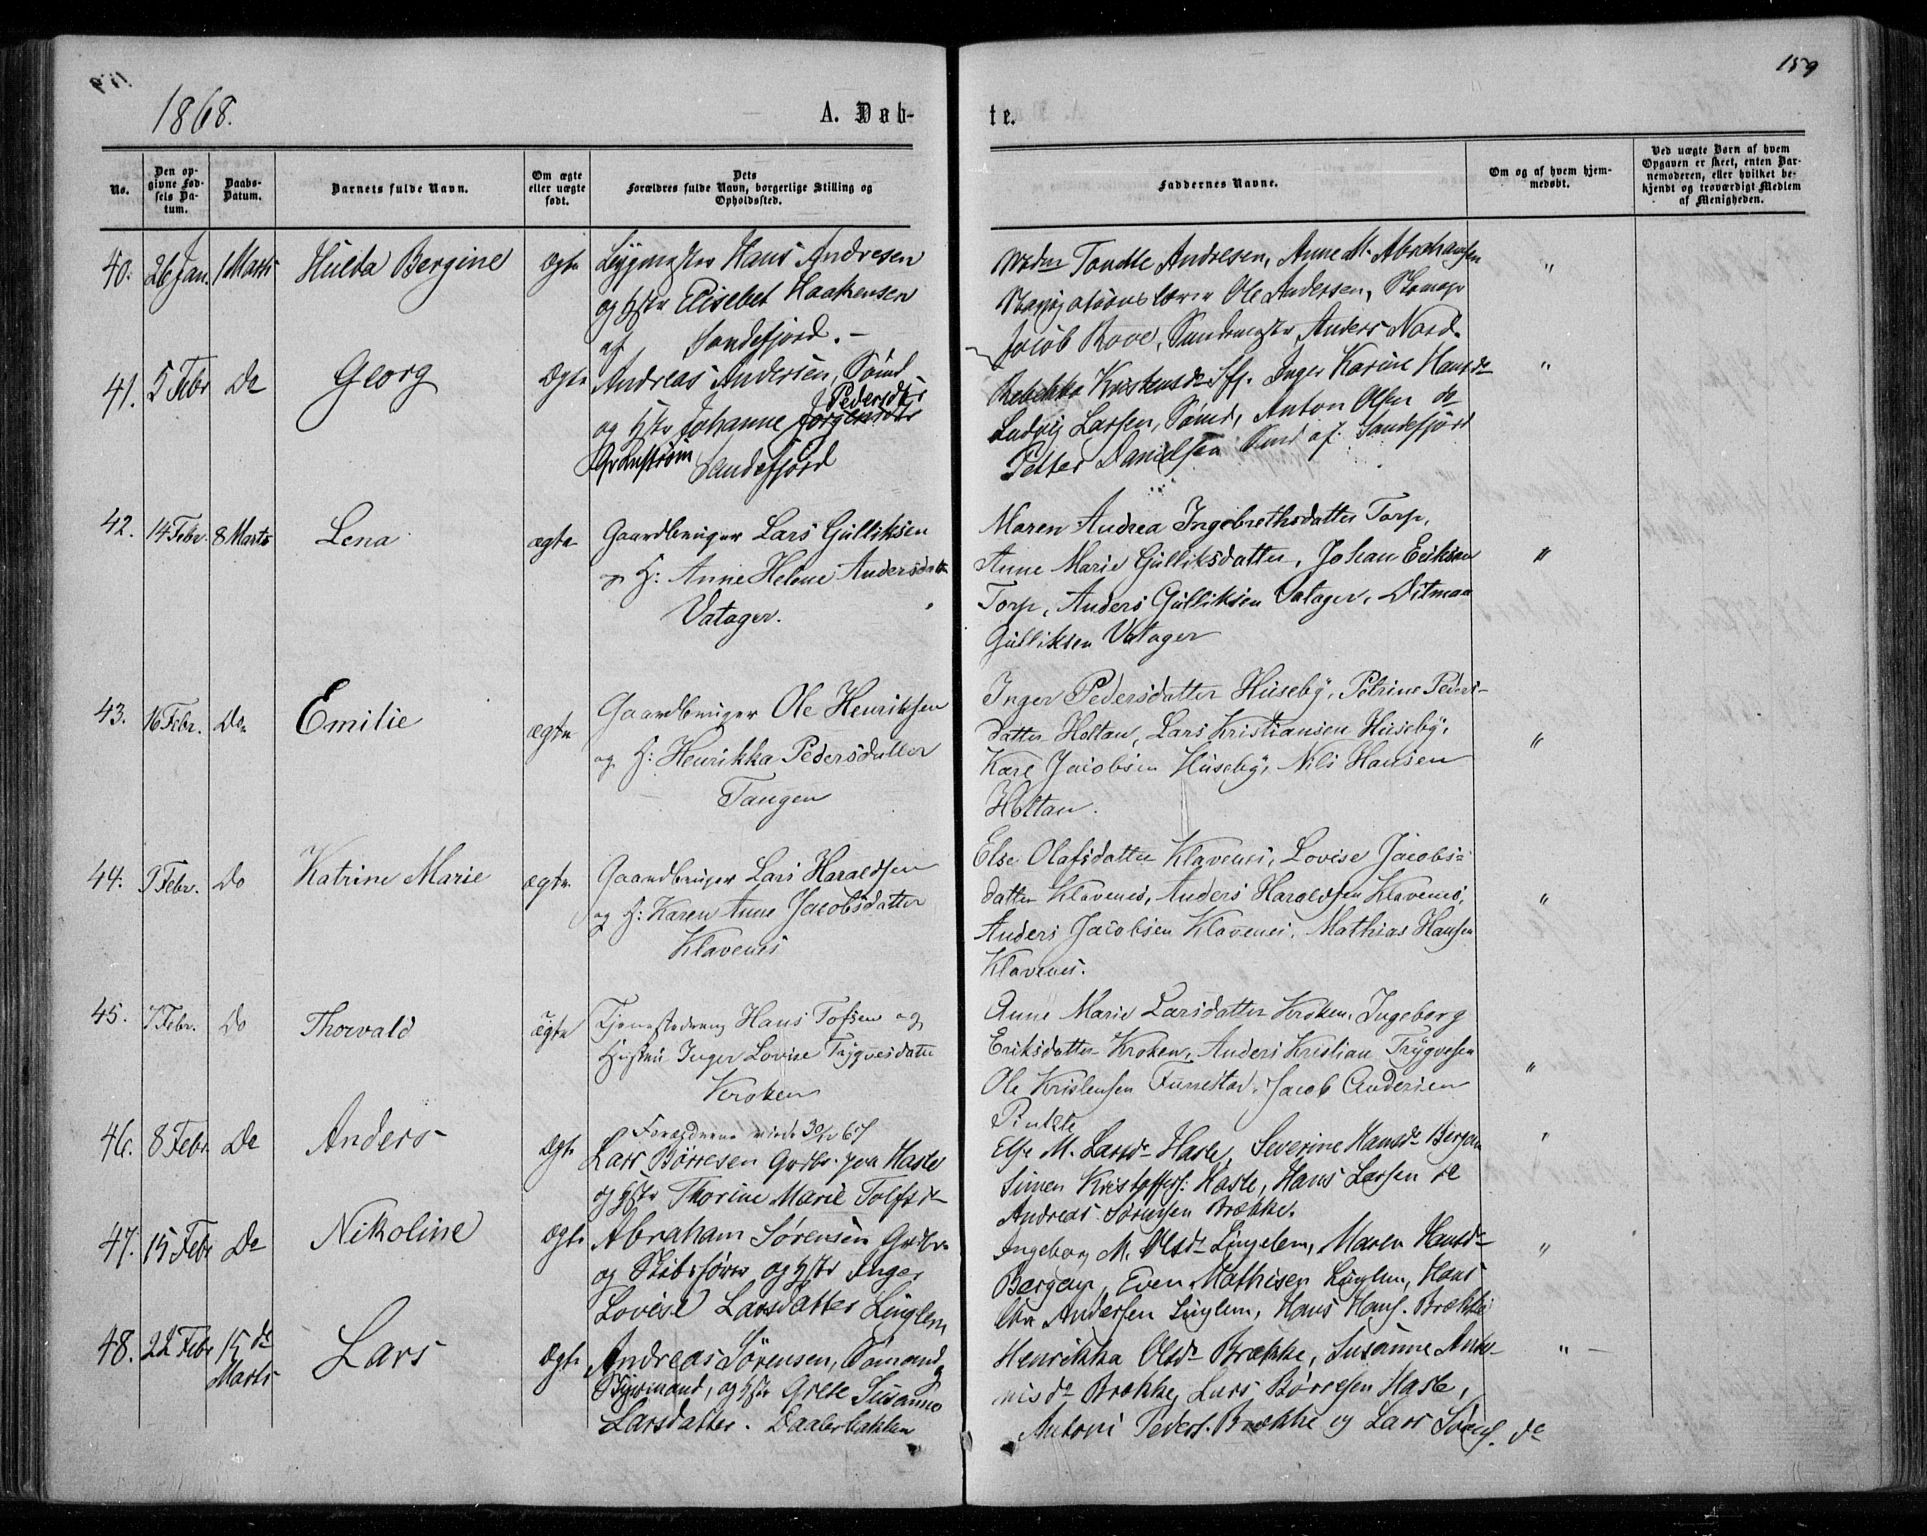 159
1868.
A. Døb-
te.
No.
Den op-
givne Fød-
sels Da-
tum.
Daabs-
Datum.
Barnets fulde Navn.
Om ægte
eller uægte
født.
Dets
Forældres fulde Navn, borgerlige Stilling og
Opholdssted.
Faddernes Navne.
Om og af hvem hjem-
medøbt.
Ved uægte Børn af hvem
Opgaven er skeet, enten Bar-
nemoderen, eller hvilket be-
kjendt og troværdigt Medlem
af Menigheden.
40. 26 Jan. 1 Marts Hulda Bergine ægte
Hans Andresen
og Hstr Elisebet Haakensen
af Sandefjord. -
Andresen, Anne M. Abrahamsen
Ole Andersen,
Jacob Rove, Anders Nord.
"
41. 5 Febr Do Georg Ægte
Andreas Andersen, Sømd
Pedersdtr
og Hstr Johanne Jörgensdtr
Sandefjord
Rebekka Kristensdr Sfj. Inger Karine Hansdr
Ludvig Larsen, Sømd, Anton Olsen do
Petter Danielsen Smd af Sandefjord
"
42. 14 Febr. 8 Marts Lena ægte
Gaardbruger Lars Gulliksen
og H: Anne Helene Andersdatter
Vatager.
Maren Andrea Ingebrethsdatter Torp,
Anne Marie Gulliksdatter, Johan Eriksen
Torp, Anders Gulliksen Vatager, Ditman
Gulliksen Vatager
"
43. 16 Febr. Do. Emilie ægte
Gaardbruger Ole Henriksen
og H: Henrikka Pedersdatter
Tangen
Inger Pedersdatter Huseby, Petrine Peders-
datter Holtan, Lars Kristiansen Huseby,
Karl Jacobsen Huseby, Nils Hansen
Holtan.
"
44. 9 Febr. Do Katrine Marie ægte
Gaardbruger Lars Haraldsen
og H: Karen Anne Jacobsdatter
Klavenes
Else Olafsdatter Klavenes, Lovise Jacobs=
datter Klavenes, Anders Haraldsen Klavenes,
Anders Jacobsen Klavenes, Mathias Hansen
Klavenes.
"
45. 7 Febr. Do Thorvald ægte
Tjenestedreng Hans Tofsen og
Hustru Inger Lovise Trygvesdatter
Kroken
Anne Marie Larsdatter Kroken, Ingeborg
Eriksdatter Kroken, Anders Kristian Trygvesen
Ole Kristensen Jacob Andersen
"
46. 8 Febr Do Anders Ægte
Forældrene viede 30/10 67
Lars Børresen Grdbr. paa Hasle
og Hstr Thorine Marie Tolfsd-
Else M. Larsdr Hasle, Severine Hansdr Bergan
Simen Kristoffers. Hasle, Hans Larsen do
Andreas Sørensen Brække.
"
47. 15 Febr Do Nikoline Ægte
Abraham Sørensen Grdbr.
og Skibsfører og Hstr Inger
Lovise Larsdatter Linglem
Ingeborg M. Olsdr Lingelem, Maren Hansdr
Bergan, Even Mathisen Linglem, Hans
Chr Andersen Linglem, Hans Hans. Brække
"
48. 22 Febr 15de
Marts Lars Ægte
Andreas Sørensen, Sømand og
Styrmand, og Hstr Grete Susanne
Larsdatter. Daalerbakken
Henrikka Olsdr Brække, Susanne Anto-
nisdr Brække, Lars Børresen Hasle,
Antoni Peders. Brække og Lars Sörens. do
" -